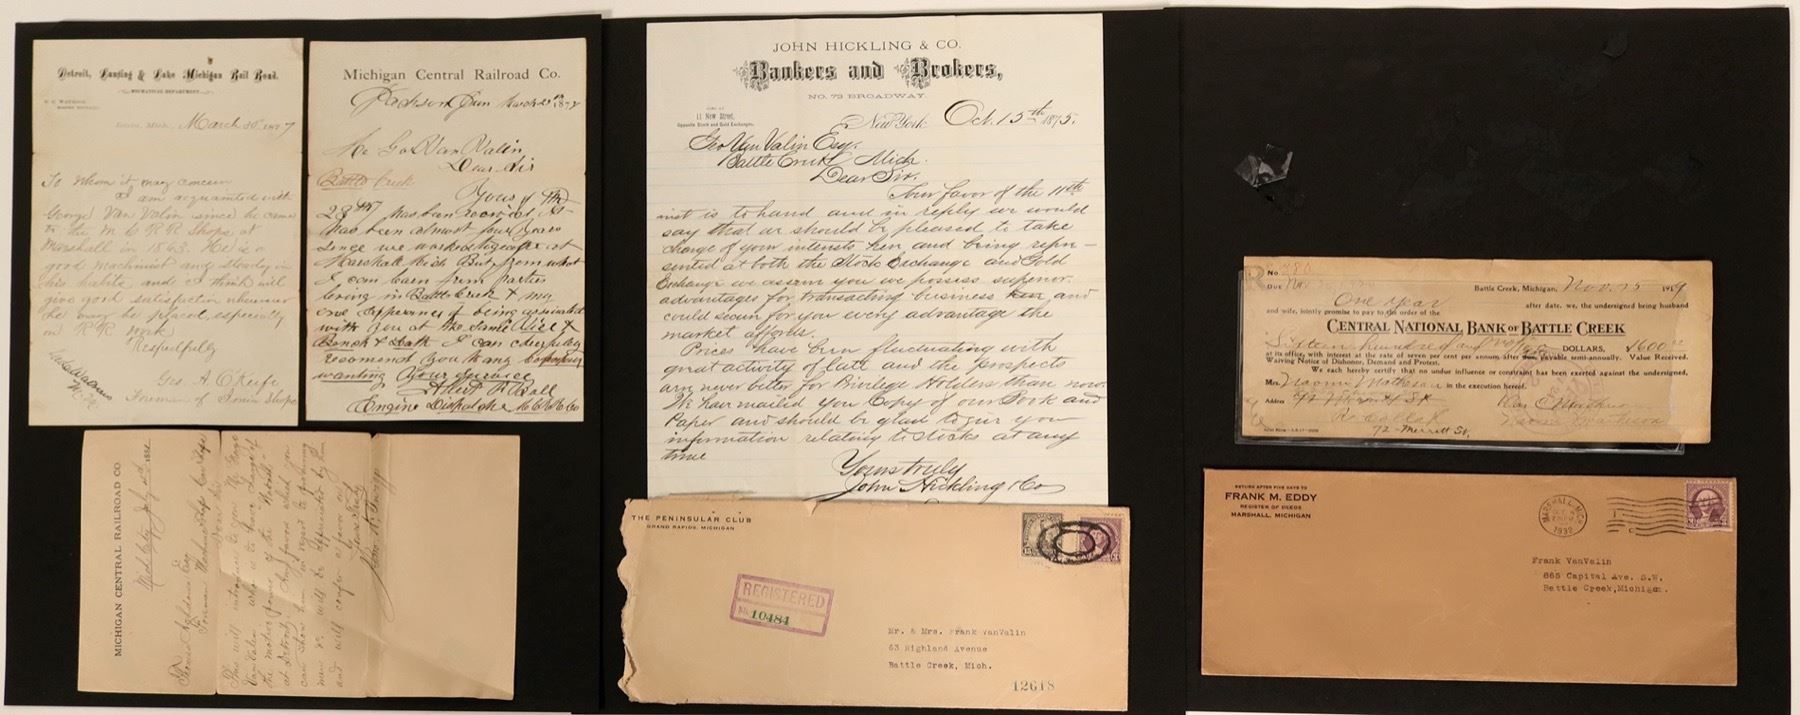 Detroit, Lansing & Lake Michigan Rail Road.
MECHANICAL DEPARTMENT.
March 30 1877
To whom it may concern
I am acquainted with
George Van Valin since he came
to the M C R R Shops at
Marshall in 1863. He is a
good machinist and steady in
his habits and I think will
give good satisfaction wherever
he may be placed, especially
on R R work
Respectfully
Geo. A. O'Keife
Foreman of Ionia Shops
Michigan Central Railroad Co.
Jackson
March 29th 1872
Mr Geo Van Valin
Dear Sir
Battle Creek
Yours of the
28th has been received It
has been almost four years
since we worked together at
Marshall Mich But from what
I can learn from Parties
living in Battle Creek & my
own experience of being associated
with you at the same Vice &
Bench & Lath I can cheerfully
recommend you to any Company
wanting your service
Albert R Ball
Engine Dispatcher M C R R Co
MICHIGAN CENTRAL RAILROAD CO.
Mich City July
Foreman Machine Shop
This will introduce to you Mr Geo
Van Valin who is to have charge of
the motive power of the Wabash
at Detroit. Any favor which you
can show him in regard to
men &c will be appreciated by him
and will confer a favor on
Yours Truly
JOHN HICKLING & CO.
Bankers and Brokers,
NO. 72 BROADWAY.
11 New Street,
Opposite Stock and Gold Exchanges.
New York Oct. 15th 1875.
Geo Van Valin Esq.
Battle Creek Mich.
Dear Sir.
Your favor of the 11th
inst is to hand and in reply we would
say that we should be pleased to take
charge of your interests here and being repre-
sented at both the Stock Exchange and Gold
Exchange we assure you we possess superior
advantages for transacting business here and
could secure for you every advantage the
market affords.
Prices have been fluctuating with
great activity of late and the prospects
are never better for Privilege Holders than now.
We have mailed you Copy of our Book and
Paper and should be glad to give you
information relating to stocks at any
time
Yours truly
John Hickling & Co
THE PENINSULAR CLUB
GRAND RAPIDS, MICHIGAN
15
3
REGISTERED
No. 10484
Mr. & Mrs. Frank VanValin
63 Highland Avenue
Battle Creek, Mich.
12618
R
No. 280
DUE Nov
Battle Creek, Michigan, Nov. 15 1919
One Year after date, we, the undersigned being husband
and wife, jointly promise to pay to the order of the
CENTRAL NATIONAL BANK OF BATTLE CREEK
Sixteen hundred and no/100 DOLLARS, $1600.00
at its office, with interest at the rate of seven per cent per annum, after due payable semi-annually. Value Received.
Waiving Notice of Dishonor, Demand and Protest.
We each hereby certify that no undue influence or constraint has been exerted against the undersigned,
Mrs. Naomi Matheson in the execution hereof.
Address 72 Merritt St
72 Merritt St.
RETURN AFTER FIVE DAYS TO
FRANK M. EDDY
REGISTER OF DEEDS
MARSHALL, MICHIGAN
MARSHALL, MICH.
1932
3
Frank VanValin
865 Capital Ave. S.W.
Battle Creek, Michigan.